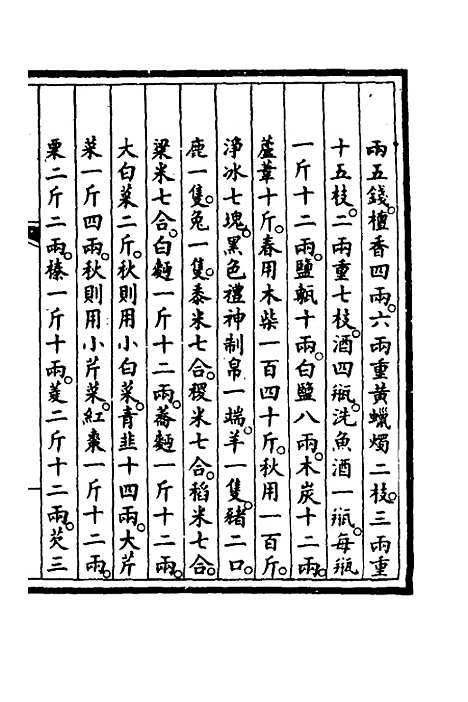 兩五錢。檀香四兩。六兩重黃蠟燭二枝。三兩重
十五枝。二兩重七枝。酒四瓶。洗魚酒一瓶。每瓶
一斤十二兩。鹽甎十兩。白鹽八兩。木炭十二兩。
蘆葦十斤。春用木柴一百四十斤。秋用一百斤。
淨冰七塊。黑色禮神制帛一端。羊一隻。豬二口。
鹿一隻。兔一隻。黍米七合。稷米七合。稻米七合。
粱米七合。白麵一斤十二兩。蕎麵一斤十二兩。
大白菜二斤。秋則用小白菜。青韭十四兩。大芹
菜一斤四兩。秋則用小芹菜。紅棗一斤十二兩。
栗二斤二兩。榛一斤十兩。菱二斤十二兩。芡三